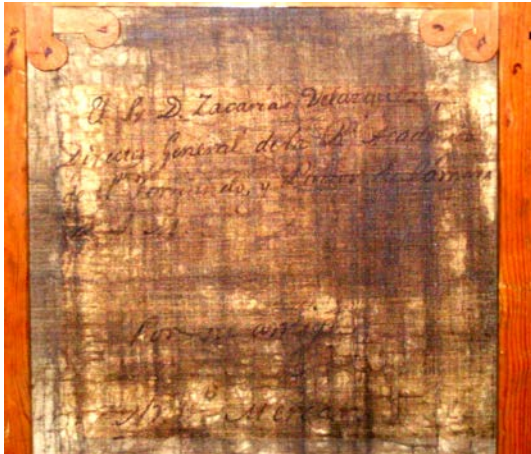 El Sr. D. Zacarías Velazquez,
Director General de la Rl. Academia
de Sn. Fernando, y Pintor de Cámara
de S. M.
Por su amigo